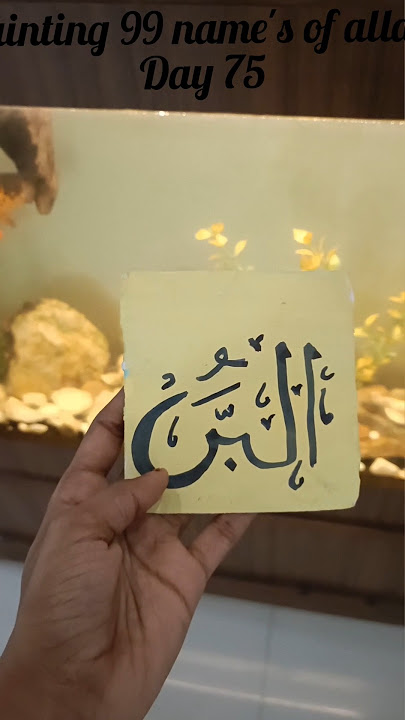 ainting 99 name's of alla
Day 75
البَرُّ